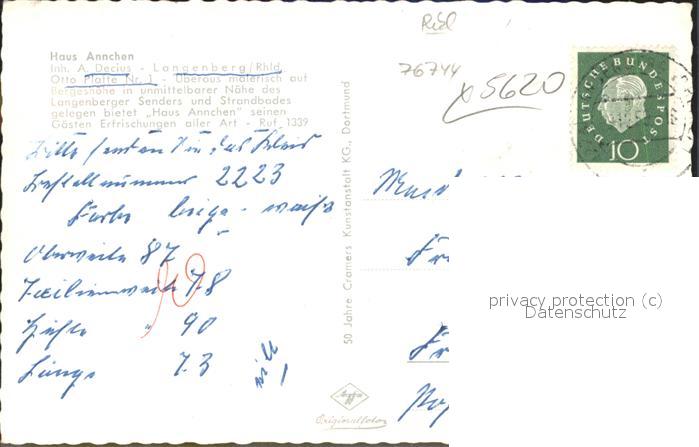 Haus Annchen
Inh. A. Decius - Langenberg/Rhld.
Otto Platte Nr. 1 - Überaus malerisch auf
Bergeshöhe in unmittelbarer Nähe des
Langenberger Senders und Strandbades
gelegen bietet „Haus Annchen" seinen
Gästen Erfrischungen aller Art - Ruf 1339
Bitte senden Sie das Kleid
Bestellnummer 2223
Farbe beige - weiß
Oberweite 87
Taillenweite 78
Hüfte " 90
Länge 73
50 Jahre Cramers Kunstanstalt KG., Dortmund
Originalfoto
76744
x 5620
DEUTSCHE BUNDESPOST
10
privacy protection (c)
Datenschutz